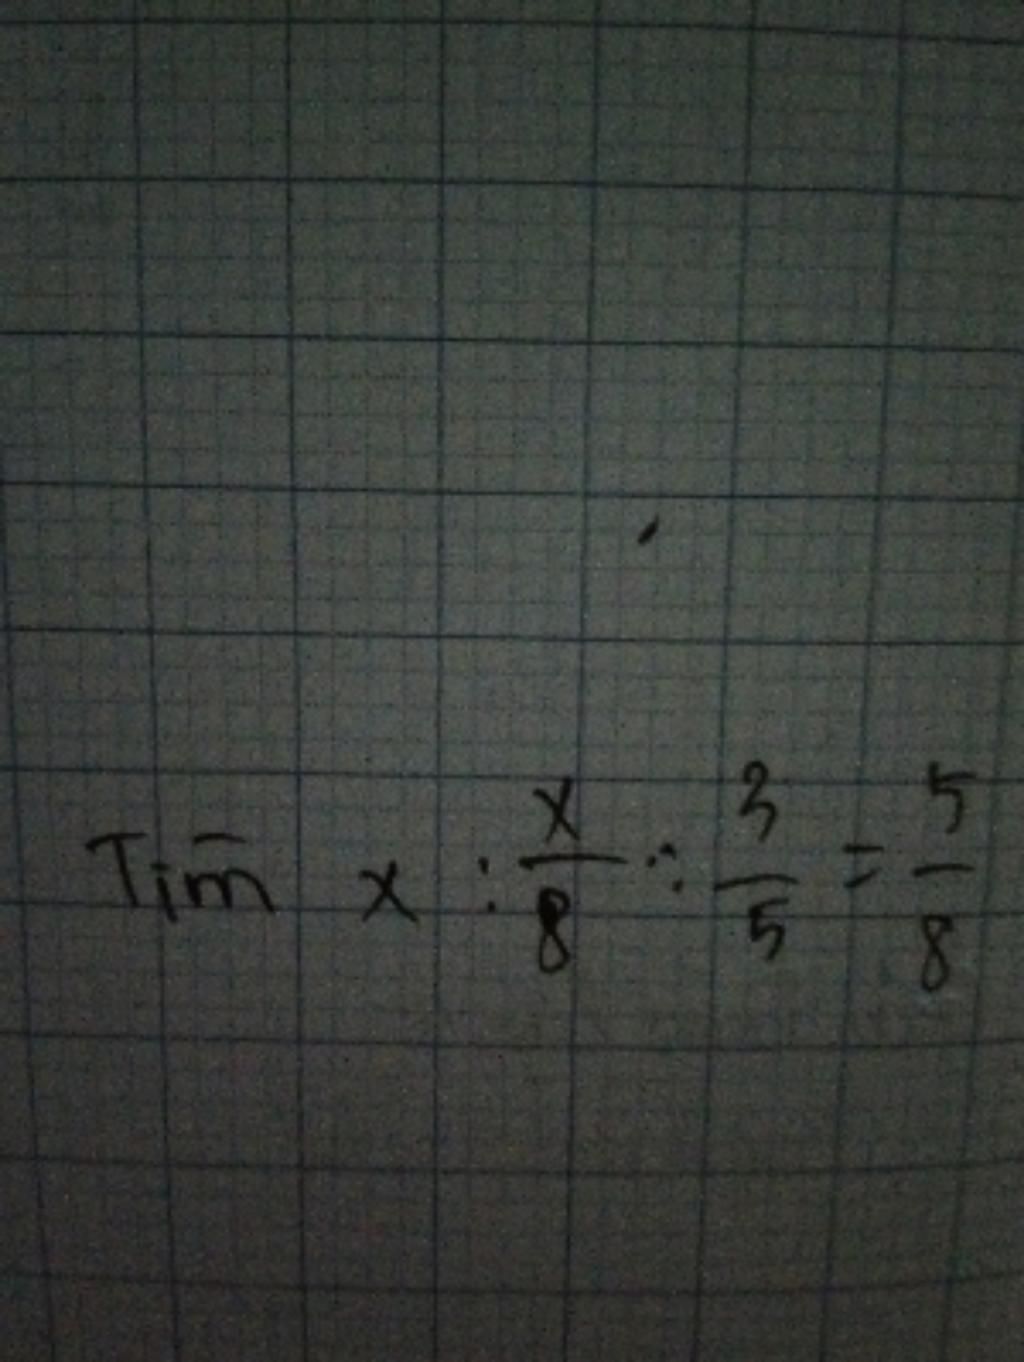 Tìm x : x/8 : 3/5 = 5/8